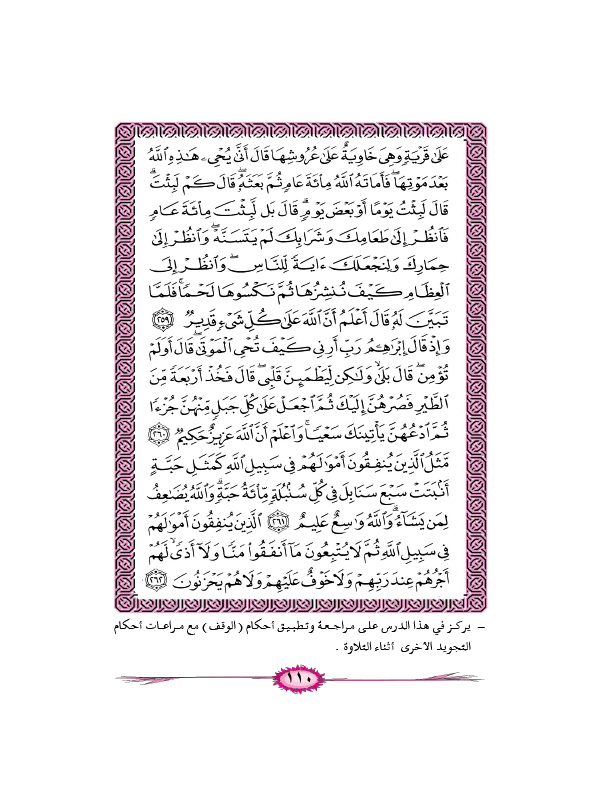 عَلَىٰ قَرْيَةٍ وَهِيَ خَاوِيَةٌ عَلَىٰ عُرُوشِهَا قَالَ أَنَّىٰ يُحْيِۦ هَٰذِهِ ٱللَّهُ
بَعْدَ مَوْتِهَاۖ فَأَمَاتَهُ ٱللَّهُ مِائَةَ عَامٍ ثُمَّ بَعَثَهُۥۖ قَالَ كَمْ لَبِثْتَۖ
قَالَ لَبِثْتُ يَوْمًا أَوْ بَعْضَ يَوْمٍۖ قَالَ بَل لَّبِثْتَ مِائَةَ عَامٍ
فَٱنظُرْ إِلَىٰ طَعَامِكَ وَشَرَابِكَ لَمْ يَتَسَنَّهْۖ وَٱنظُرْ إِلَىٰ
حِمَارِكَ وَلِنَجْعَلَكَ ءَايَةً لِّلنَّاسِۖ وَٱنظُرْ إِلَى
ٱلْعِظَامِ كَيْفَ نُنشِزُهَا ثُمَّ نَكْسُوهَا لَحْمًاۚ فَلَمَّا
تَبَيَّنَ لَهُۥ قَالَ أَعْلَمُ أَنَّ ٱللَّهَ عَلَىٰ كُلِّ شَىْءٍ قَدِيرٌ ٢٥٩
وَإِذْ قَالَ إِبْرَٰهِـۧمُ رَبِّ أَرِنِى كَيْفَ تُحْىِ ٱلْمَوْتَىٰۖ قَالَ أَوَلَمْ
تُؤْمِنۖ قَالَ بَلَىٰ وَلَٰكِن لِّيَطْمَئِنَّ قَلْبِىۖ قَالَ فَخُذْ أَرْبَعَةً مِّنَ
ٱلطَّيْرِ فَصُرْهُنَّ إِلَيْكَ ثُمَّ ٱجْعَلْ عَلَىٰ كُلِّ جَبَلٍ مِّنْهُنَّ جُزْءًا
ثُمَّ ٱدْعُهُنَّ يَأْتِينَكَ سَعْيًاۚ وَٱعْلَمْ أَنَّ ٱللَّهَ عَزِيزٌ حَكِيمٌ ٢٦٠
مَّثَلُ ٱلَّذِينَ يُنفِقُونَ أَمْوَٰلَهُمْ فِى سَبِيلِ ٱللَّهِ كَمَثَلِ حَبَّةٍ
أَنۢبَتَتْ سَبْعَ سَنَابِلَ فِى كُلِّ سُنۢبُلَةٍ مِّائَةُ حَبَّةٍۗ وَٱللَّهُ يُضَٰعِفُ
لِمَن يَشَآءُۗ وَٱللَّهُ وَٰسِعٌ عَلِيمٌ ٢٦١ ٱلَّذِينَ يُنفِقُونَ أَمْوَٰلَهُمْ
فِى سَبِيلِ ٱللَّهِ ثُمَّ لَا يُتْبِعُونَ مَآ أَنفَقُوا۟ مَنًّا وَلَآ أَذًىۙ لَّهُمْ
أَجْرُهُمْ عِندَ رَبِّهِمْ وَلَا خَوْفٌ عَلَيْهِمْ وَلَا هُمْ يَحْزَنُونَ ٢٦٢
- يركز في هذا الدرس على مراجعة وتطبيق أحكام (الوقف) مع مراعات أحكام
التجويد الاخرى أثناء التلاوة .
١١٠